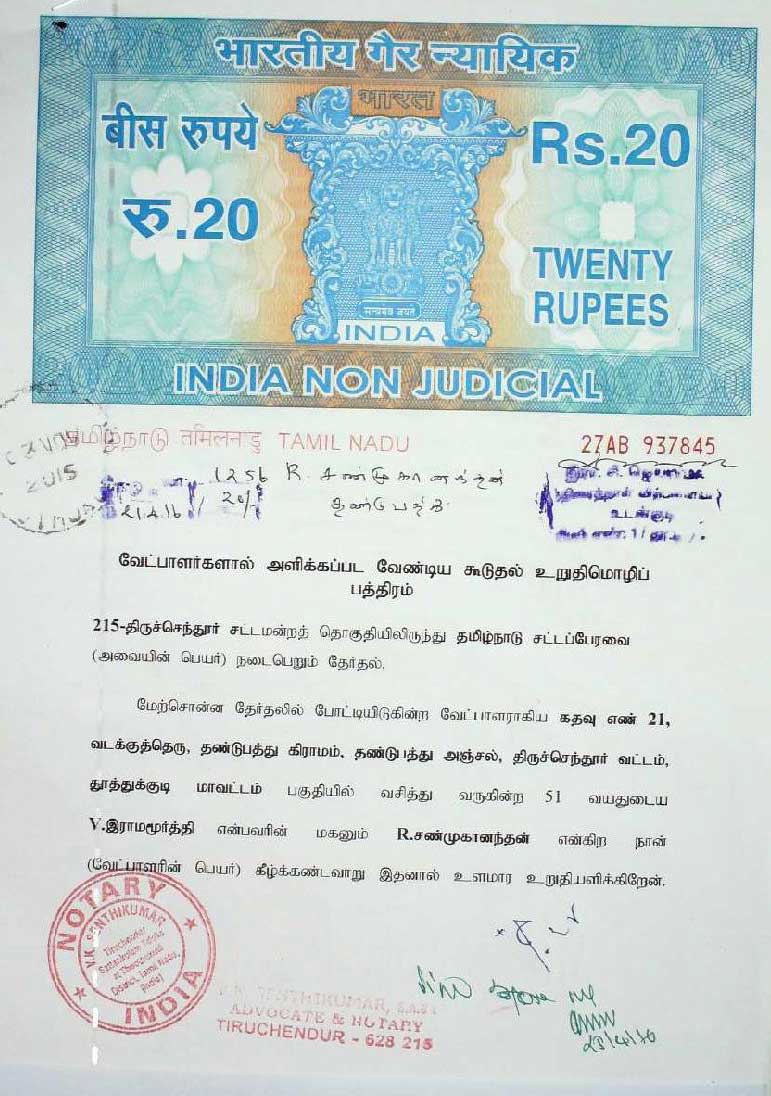 भारतीय गैर न्यायिक
भारत
बीस रुपये
रु.20
Rs.20
TWENTY
RUPEES
सत्यमेव जयते
INDIA
INDIA NON JUDICIAL
தமிழ்நாடு तमिलनाडु TAMIL NADU
27AB 937845
2015
1256 R. சண்முகானந்தன்
21.4.16 20/-
தண்டுபத்து
உடன்குடி
வேட்பாளர்களால் அளிக்கப்பட வேண்டிய கூடுதல் உறுதிமொழிப்
பத்திரம்
215-திருச்செந்தூர் சட்டமன்றத் தொகுதியிலிருந்து தமிழ்நாடு சட்டப்பேரவை
(அவையின் பெயர்) நடைபெறும் தேர்தல்.
மேற்சொன்ன தேர்தலில் போட்டியிடுகின்ற வேட்பாளராகிய கதவு எண் 21,
வடக்குத்தெரு, தண்டுபத்து கிராமம், தண்டுபத்து அஞ்சல், திருச்செந்தூர் வட்டம்,
தூத்துக்குடி மாவட்டம் பகுதியில் வசித்து வருகின்ற 51 வயதுடைய
V.இராமமூர்த்தி என்பவரின் மகனும் R.சண்முகானந்தன் என்கிற நான்
(வேட்பாளரின் பெயர்) கீழ்க்கண்டவாறு இதனால் உளமார உறுதியளிக்கிறேன்.
NOTARY
V.K. SENTHIKUMAR
Tiruchendur
INDIA
SENTHIKUMAR,
ADVOCATE & NOTARY
TIRUCHENDUR - 628 215